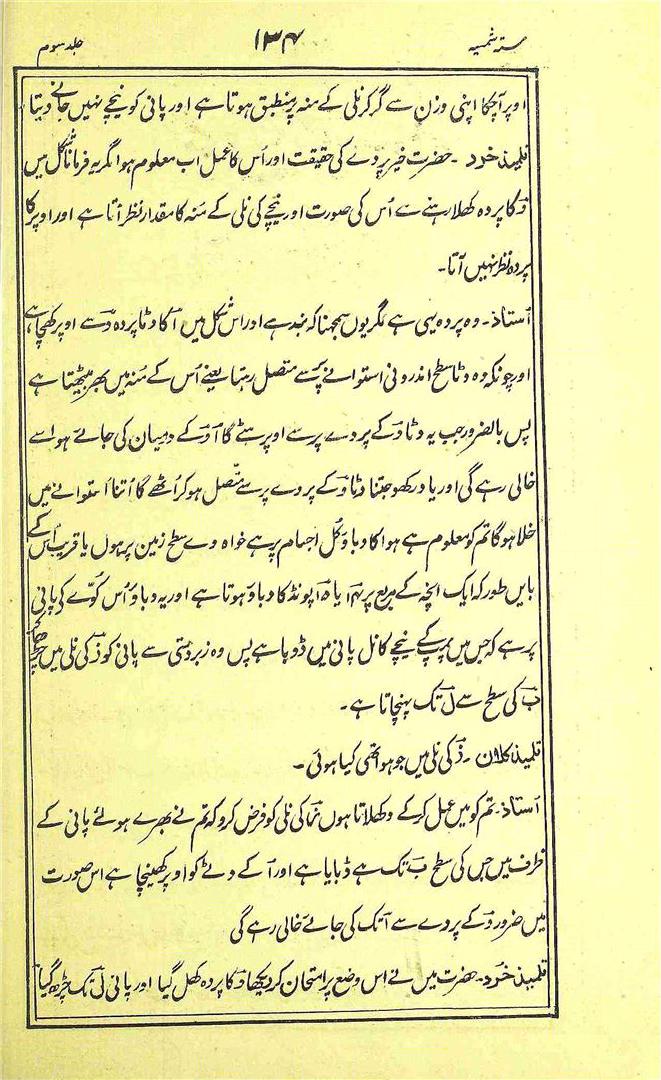 ستہ شمسیہ ۱۳۴ جلد سوم
اوپر آچکا اپنی وزن سے گر کر نلی کے منہ پر منطبق ہوتا ہے اور پانی کو نیچے نہیں جانے دیتا
تلمیذ خرد ۔ حضرت خیر پردے کی حقیقت اور اُس کا عمل اب معلوم ہوا مگر یہ فرمانا شکل میں
دَ کا پردہ کھلا رہنے سے اُس کی صورت اور نیچے کی نلی کے منہ کا مقدار نظر آتا ہے اور اوپر کا
پردہ نظر نہیں آتا۔
اُستاذ ۔ وہ پردہ یہی ہے مگر یوں سمجھنا کہ بند ہے اور اس شکل میں آ کا دٹا پردہ دَ سے اوپر کھچا ہے
اور چونکہ وہ دٹا سطح اندرونی استوانے پَ سے متصل رہتا یعنے اُس کے مُنہ میں بھر بیٹھتا ہے
پس بالضرور جب یہ دٹا دَ کے پردے پر سے اوپر ہٹے گا آ دَ کے درمیان کی جائے ہوا سے
خالی رہے گی اور یاد رکھو جتنا دٹا دَ کے پردے پر سے متصل ہو کر اُٹھے گا اُتنا اُستوانے میں
خلا ہوگا تم کو معلوم ہے ہوا کا دباو کُل اجسام پر ہے خواہ وے سطح زمین پر ہوں یا قریب اُس کے
بایں طور کہ ایک انچہ کے مربع پر ۱۴ یا ۱۵ پونڈ کا دباو ہوتا ہے اور یہ دباو اُس کوے کی پانی
پر ہے کہ جس میں پمپ کے نیچے کا نل پانی میں ڈوبا ہے پس وہ زبردستی سے پانی کو ذَ کی نلی میں چڑھا کر
بَ کی سطح سے لَ تک پہنچاتا ہے ۔
تلمیذ کلان ۔ ذَ کی نلی میں جو ہوا تھی کیا ہوئی ۔
اُستاذ ۔ تم کو میں عمل کر کے دکھلاتا ہوں کی نلی کو فرض کرو کہ تم نے بھرے ہوئے پانی کے
ظرف میں جس کی سطح بَ تک ہے ڈبایا ہے اور آ کے دٹے کو اوپر کھینچا ہے اس صورت
میں ضرور دَ کے پردے سے آ تک کی جائے خالی رہے گی
تلمیذ خرد ۔ حضرت میں نے اس وضع پر امتحان کر دیکھا دَ کا پردہ کھل گیا اور پانی لَ تک چڑھ گیا